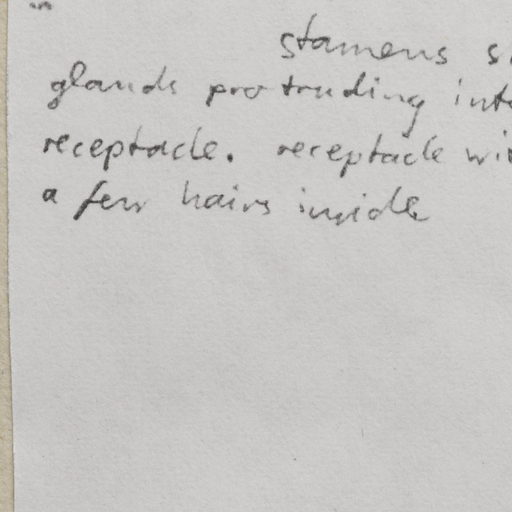 stamens
glands protruding into
receptacle. receptacle with
a few hairs inside